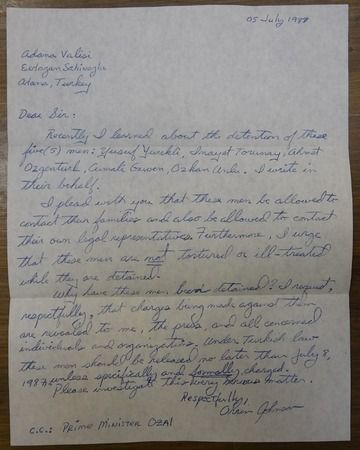 05 July 1989
Adana Valisi
Adana, Turkey
Dear Sir:
Recently I learned about the detention of these
five (5) men: Yusuf Yurekli, Inayet Torunay, Ahmet
Ozgenturk, Cumali Guven, Ozkan Unlu. I write
in their behalf.
I plead with you that these men be allowed to
contact their families and also be allowed to contact
their own legal representatives. Furthermore, I urge
that these men are not tortured or ill-treated
while they are detained.
Why have these men been detained? I request,
respectfully, that charges being made against them
are revealed to me, the press, and all concerned
individuals and organizations. Under Turkish law
these men should be released no later than July 8,
1989 unless specifically and formally charged.
Please investigate this very serious matter.
Respectfully,
Johnson
C.C.: PRIME MINISTER OZAL